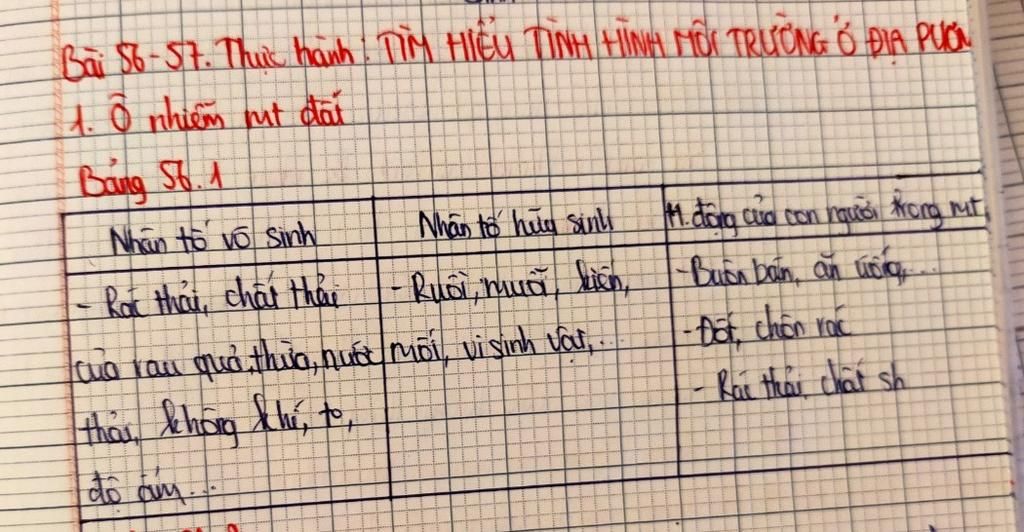 Bài 56-57. Thực hành: TÌM HIỂU TÌNH HÌNH MÔI TRƯỜNG Ở ĐỊA PƯƠN
1. Ô nhiễm mt đất
Bảng 56.1
Nhân tố vô sinh
Nhân tố hữu sinh
H. động của con người trong mt
- Rác thải, chất thải
của rau quả, thừa, nước
thải, không khí, t°,
độ ẩm...
- Ruồi, muỗi, kiến,
mối, vi sinh vật,...
- Buôn bán, ăn uống,...
- Đốt, chôn rác
- Rác thải, chất sh